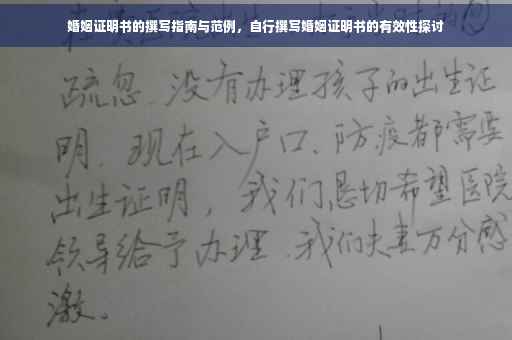 婚姻证明书的撰写指南与范例，自行撰写婚姻证明书的有效性探讨
疏忽、没有办理孩子的出生证
明、现在入户口、防疫都需要
出生证明，我们恳切希望医院
领导给予办理、我们夫妻万分感
激。